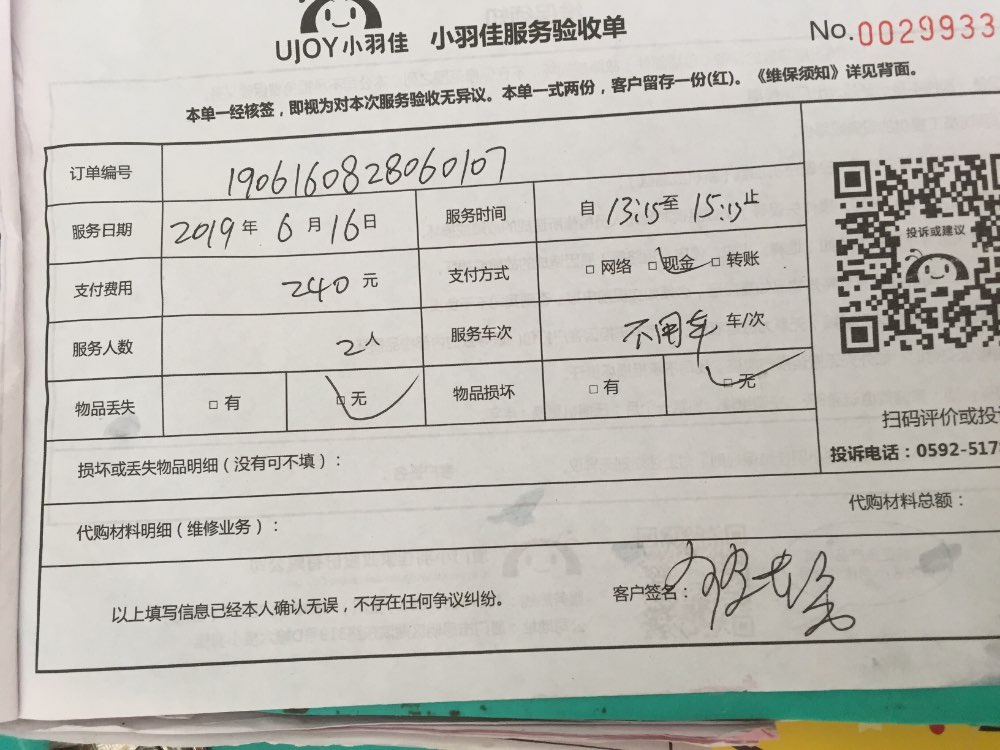 UJOY小羽佳 小羽佳服务验收单
No.0029933
本单一经核签，即视为对本次服务验收无异议。本单一式两份，客户留存一份(红)。《维保须知》详见背面。
订单编号 190616082806010７
服务日期 2019年6月16日 服务时间 自13:15至15:15止
支付费用 240元 支付方式 □网络 □现金 □转账
服务人数 2人 服务车次 不用车 车/次
物品丢失 □有 □无 物品损坏 □有 □无
投诉或建议
扫码评价或投
投诉电话：0592-517
损坏或丢失物品明细（没有可不填）：
代购材料明细（维修业务）：
代购材料总额：
以上填写信息已经本人确认无误，不存在任何争议纠纷。
客户签名：